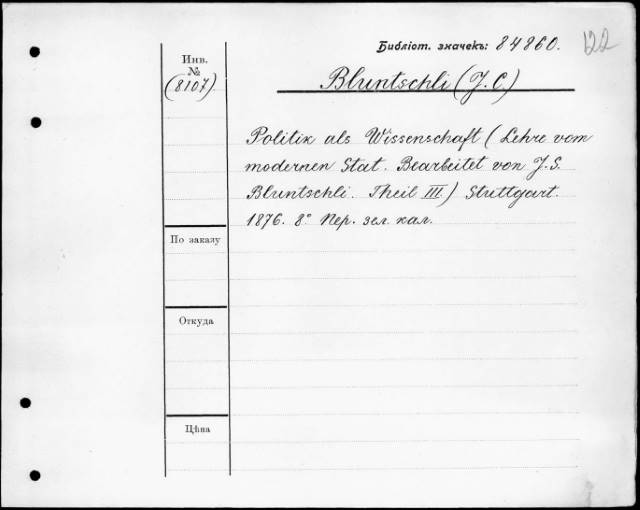 Библіот. значекъ: 84860.
122
Инв.
№
(8107)
Bluntschli (J. C.)
Politik als Wissenschaft (Lehre vom
modernen Stat. Bearbeitet von J. S.
Bluntschli. Theil III.) Stuttgart.
1876. 8° Пер. зел. кал.
По заказу
Откуда
Цѣна